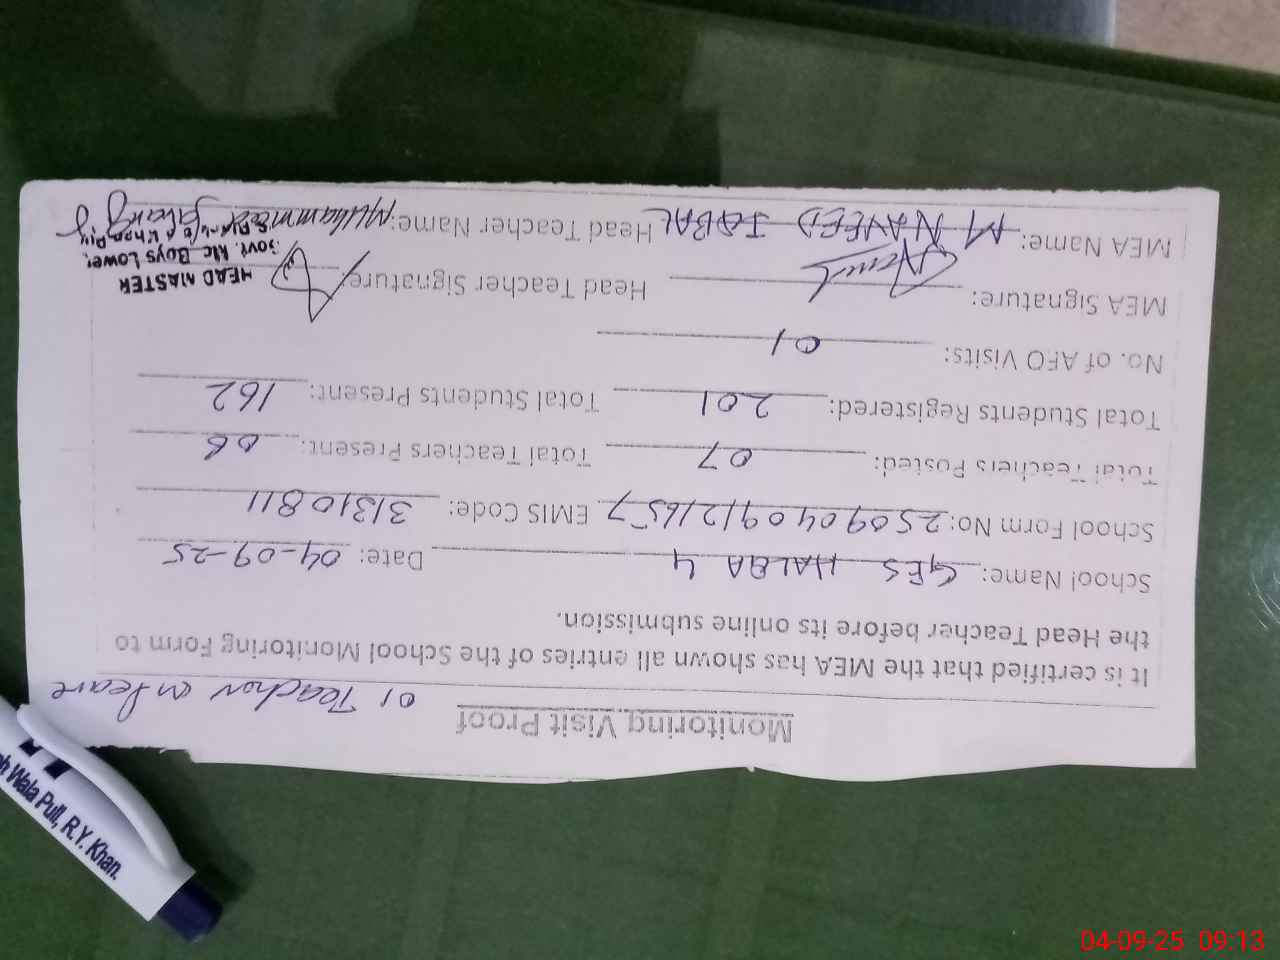 Monitoring Visit Proof
01 Teacher on leave
It is certified that the MEA has shown all entries of the School Monitoring Form to
the Head Teacher before its online submission.
School Name: GES HALQA 4 Date: 04-09-25
School Form No: 25090409121657 EMIS Code: 31310811
Total Teachers Posted: 07 Total Teachers Present: 06
Total Students Registered: 201 Total Students Present: 162
No. of AFO Visits: 01
MEA Signature: Head Teacher Signature
HEAD MASTER
Govt. Mc Boys Lower,
MEA Name: M NAVEED IQBAL Head Teacher Name: Muhammad Jahangir
Wala Pull, R.Y. Khan.
04-09-25 09:13